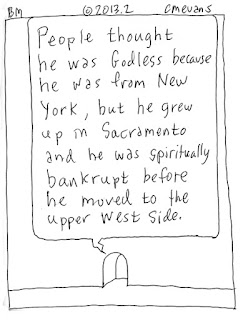 BM ©2013.2 cmevans
People thought
he was Godless because
he was from New
York, but he grew
up in Sacramento
and he was spiritually
bankrupt before
he moved to the
upper West Side.